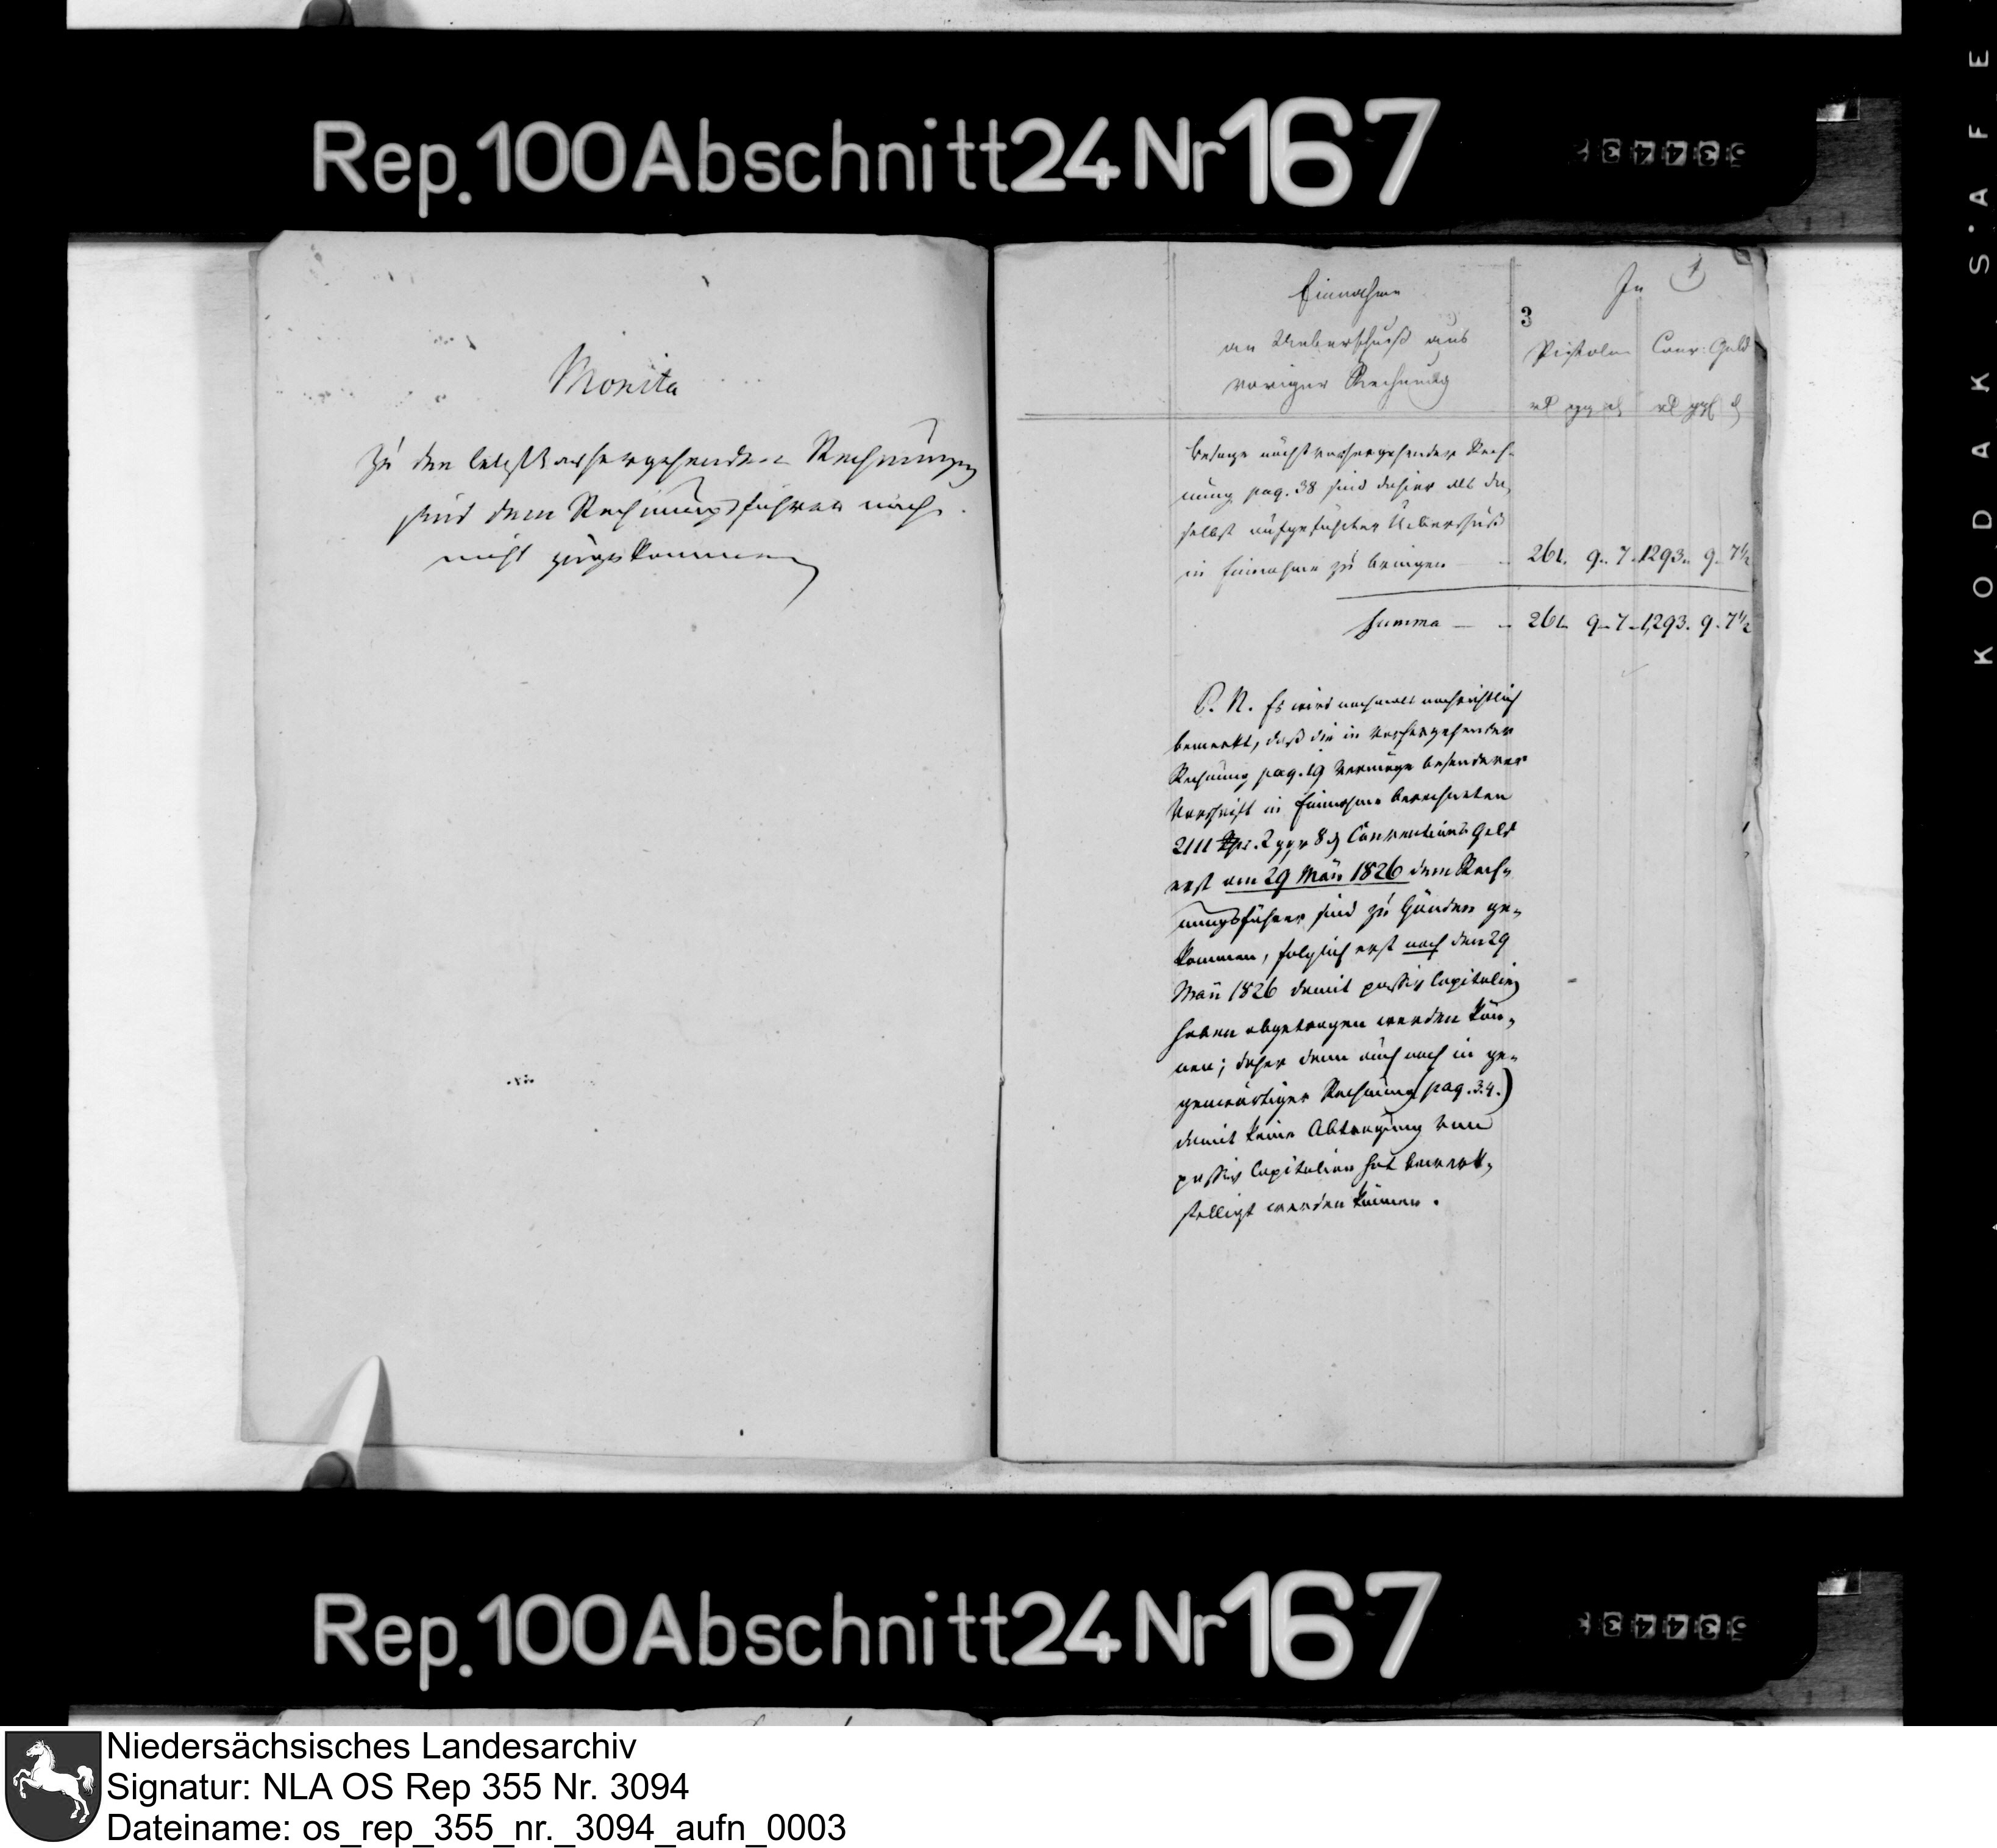 Rep. 100 Abschnitt 24 Nr 167
Monita
Zu den letztvorhergehenden Rechnungen
sind dem Rechnungsführer noch
nicht zugekommen
1
Einnahme
an Ueberschuß aus
voriger Rechnung
In
3
Pistolen Conv: Geld
rl ggr d rl ggr d
besage nächstvorhergehender Rech-
nung pag. 38 sind dahier als da,
selbst aufgeführter Ueberschuß
in Einnahme zu bringen — 261. 9. 7. 1293. 9. 7½
Summa — 261. 9. 7. 1,293. 9. 7½
P. N. Es wird nochmals nachrichtlich
bemerkt, daß die in vorhergehender
Rechnung pag. 19 vermöge besonderer
Vorschrift in Einnahme berechneten
2111 . 2 ggr 8 d Conventions Geld
erst am 29 März 1826 dem Rech,
nungsführer sind zu Händen ge,
kommen, folglich erst nach den 29
März 1826 damit passiv Capitalien
haben abgetragen werden kön,
nen; daher denn auch noch in ge,
genwärtiger Rechnung (pag. 34.)
damit keine Abtragung von
passiv Capitalien hat bewerk,
stelligt werden können.
Rep. 100 Abschnitt 24 Nr 167
KODAK S'AFE
Niedersächsisches Landesarchiv
Signatur: NLA OS Rep 355 Nr. 3094
Dateiname: os_rep_355_nr._3094_aufn_0003